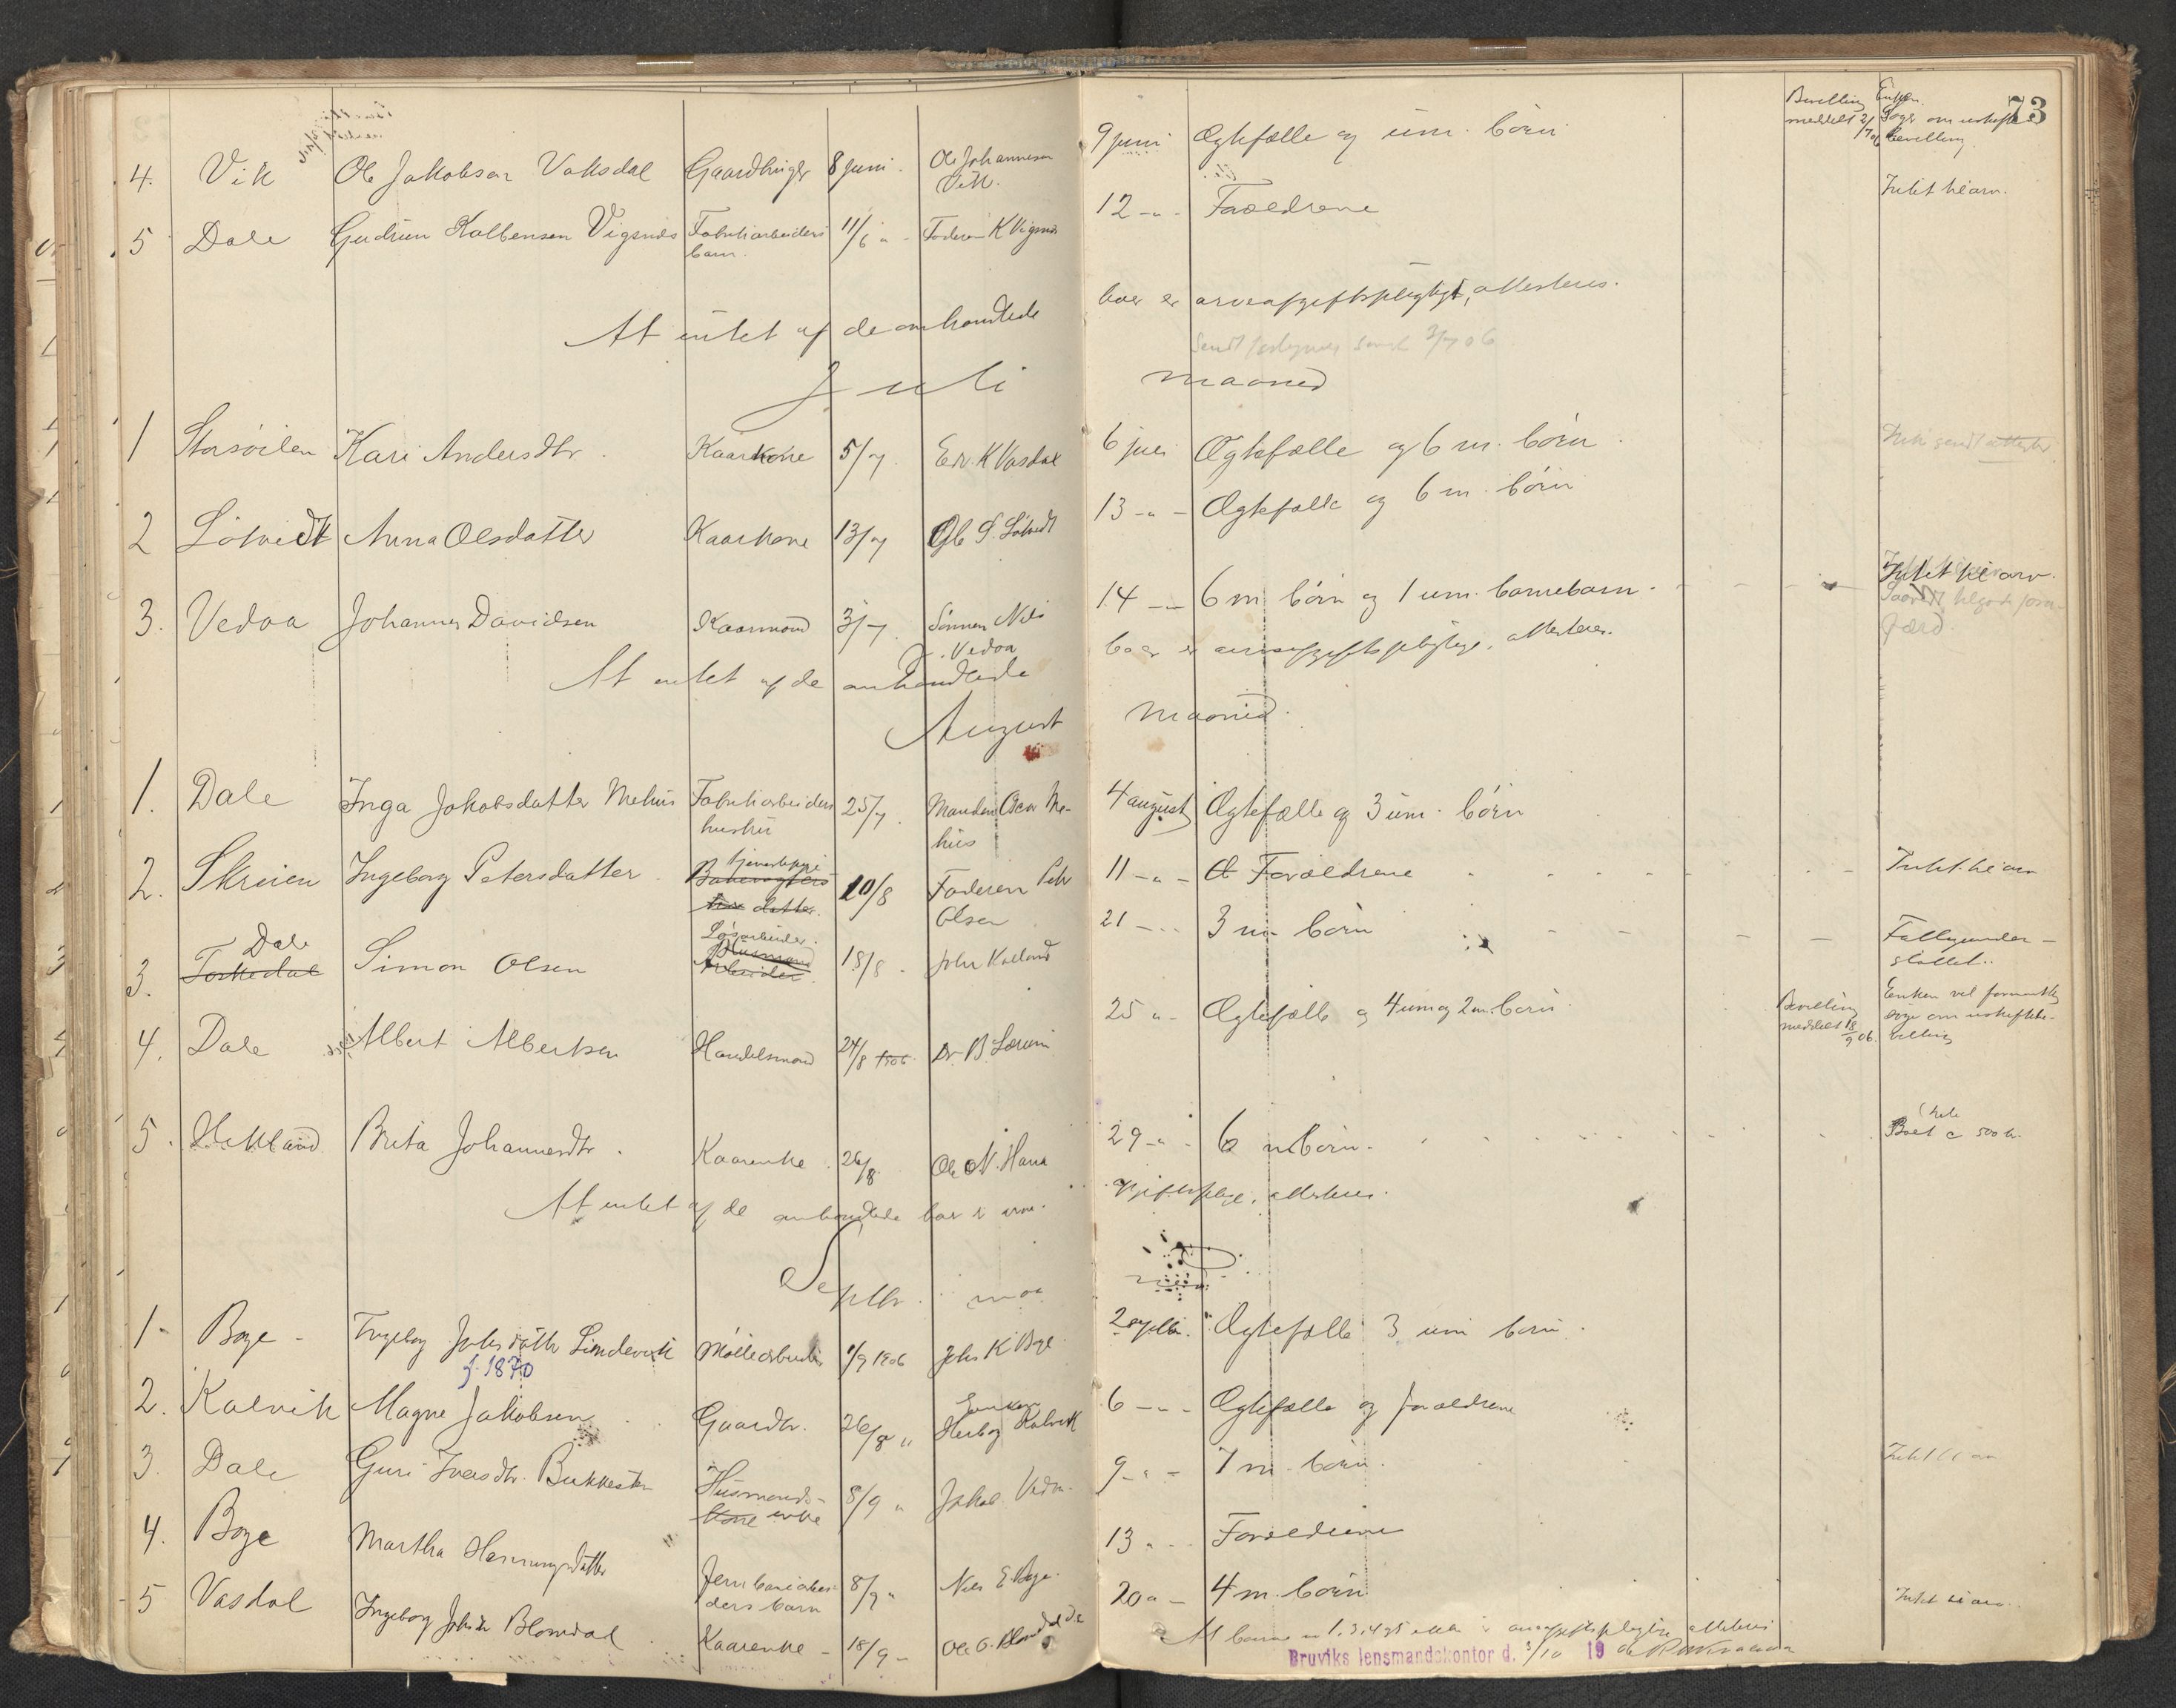 73
Bevilling meddelt 2/7 06
Enken søger om uskiftebevilling.
4. Vik Ole Jakobsen Vaksdal Gaardbruger 8 juni. Ole Johannesen Vik. 9 juni Ægtefælle og um. børn
5 Dale Gudrun Kolbensen Vigsnes Fabrikarbeiders barn. 11/6 " - Faderen K Vigsnes 12 - " - Forældrene Intet til arv.
At intet af de anmeldte boer er arveafgiftspligtigt, attesteres.
3/7 06
Juli maaned
1 Storsöilen Kari Andersdtr. Kaarkone 5/7. Edv. K Vasdal 6 juli Ægtefælle og 6 m. børn
2 Løtvedt Anna Olsdatter Kaarkone 13/7 Ole S. Løtvedt 13 - " - Ægtefælle og 6 m. børn
3. Vedaa Johannes Davidsen Kaarmand 3/7. Sönnen Nils J. Vedaa 14 - " - 6 m børn og 1 um. barnebarn. Intet til arv.
At intet af de anmeldte boer er arveafgiftspligtige, attesteres.
August maaned.
1. Dale Inga Jakobsdatter Mehus Fabrikarbeiders hustru 25/7. Manden Oscar Mehus 4 august Ægtefælle og 3 um. børn
2. Skreien Ingeborg Petersdatter. tjenestepige Banevogters datter. 10/8 Faderen Petr Olsen 11 - " - Forældrene Intet til arv
3. Dale Toskedal Simon Olsen Løsarbeider. Husmand Arbeider. 18/8. John Kalland 21 - " - 3 m børn Fattigunderstøttet.
4. Dale Albert Albertsen Handelsmand 24/8 1906 Dr. B. Lorum 25 " - Ægtefælle og 4 um og 2 m. børn Bevilling meddelt 18/9 06. Enken vil formentlig søge om uskiftebevilling
5. Hekland Brita Johannesdtr. Kaarenke. 26/8. Ole N. Hana 29 - " - 6 m børn. Boet c 500 kr.
At intet af de anmeldte boer er arveafgiftspligt. attesteres.
Septbr. maaned
1 - Boge - Ingeborg Johsdatter Lindevik Møllearbeider 1/9 1906 Johs K Boge 2 septbr. Ægtefælle 3 um børn.
f. 1870
2. Kalvik Magne Jakobsen Gaardbr. 26/8 " Enken Herborg Kalvik 6 - " - Ægtefælle og forældrene
3. Dale Guri Iversdtr. Bukkesten Husmandskone enke 8/9 " Jakob Vedaa. 9 - " - 7 m. børn. Intet til arv
4. Boge Martha Henningsdatter Jernbanearbeiders barn 8/9 " Nils E Boge. 13 " - Forældrene
5 Vasdal Ingeborg Johsdtr Blomdal Kaarenke - 18/9 - Ole O. Blomdal 20 " - 4 m. børn Intet til arv.
At boerne n 1.3.4 og 5 ikke er arveafgiftspligtige attesteres
Bruviks lensmandskontor d. 3/10 19 06